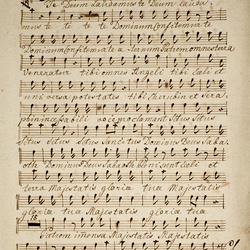 Te Deum Laudamus te Deum lauda
mus te te te Dominum Confitemur te
Dominum Confitemur te aeternum Patrem omnis terra
Veneratur tibi omnes Angeli tibi Caeli et
universae potestates tibi Cherubim et Sera
phim incessabili voce proclamant Sanctus Sanctus
Sanctus Sanctus Sanctus Sanctus Dominus Deus Saba
oth Dominus Deus Sabaoth Pleni sunt Caeli et
terra Majestatis gloriae tuae Majestatis
gloriae tuae Majestatis gloriae tuae
18
Patrem immensae Majestatis Majestatis